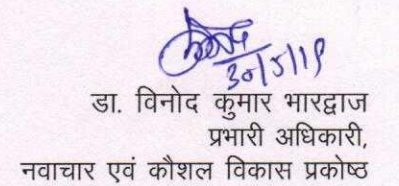 30/5/19
डा. विनोद कुमार भारद्वाज
प्रभारी अधिकारी,
नवाचार एवं कौशल विकास प्रकोष्ठ